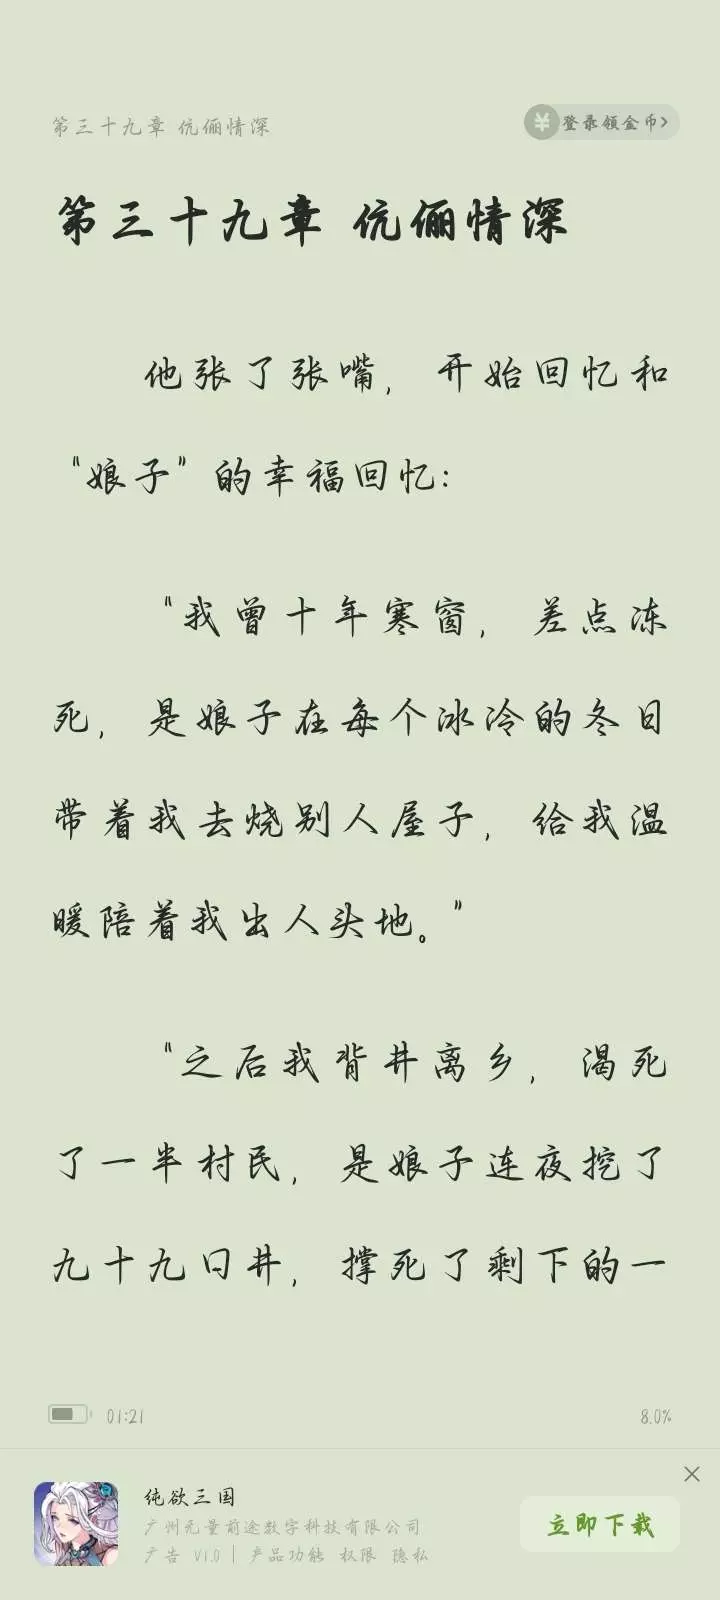 第三十九章 伉俪情深
¥登录领金币>
第三十九章 伉俪情深
他张了张嘴，开始回忆和
“娘子”的幸福回忆：
“我曾十年寒窗，差点冻
死，是娘子在每个冰冷的冬日
带着我去烧别人屋子，给我温
暖陪着我出人头地。”
“之后我背井离乡，渴死
了一半村民，是娘子连夜挖了
九十九口井，撑死了剩下的一
01:21
8.0%
纯欲三国
广州无量前途数字科技有限公司
广告 V1.0 | 产品功能 权限 隐私
立即下载